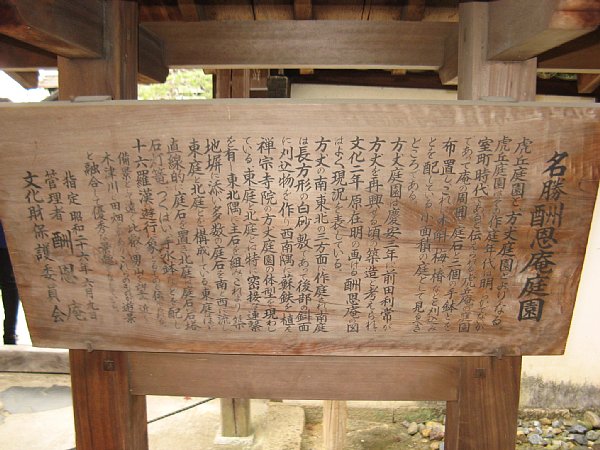 名勝 酬恩庵庭園
虎丘庭園と方丈庭園とよりなる
虎丘庭園はその作庭年代は明らかでないが
室町時代であると伝えられる
布置とされ
とを配している小面積の庭として見るべき
ところである。
方丈庭園は慶安三年に前田利常が
方丈を再興せる頃の築造と考えられ
文化二年 原在明の画ける酬恩庵の図
はよく現況を表わしている。
方丈の南東北の三方面に作庭され南庭
は長方形の白砂の敷であって後部の斜面
に刈込物を作り西南隅に蘇鉄を植え
禅宗寺院の方丈庭園の一体型を現わし
ている 東庭と北庭とは特に密接な連繋
を有し東北隅に主石を組みこれより築
地塀に添い多数の庭石を南と西に流し
東庭と北庭とを構成している東庭は
直線的に庭石を置き北庭は庭石石塔
石灯篭 つくばい 手水鉢などを配し
十六羅漢遊行の
備景として遠く比叡 男山を望み近く
木津川 田畑
と融合して優秀な景趣
指定 昭和二十六年六月
管理者 酬恩庵
文化財保護委員会